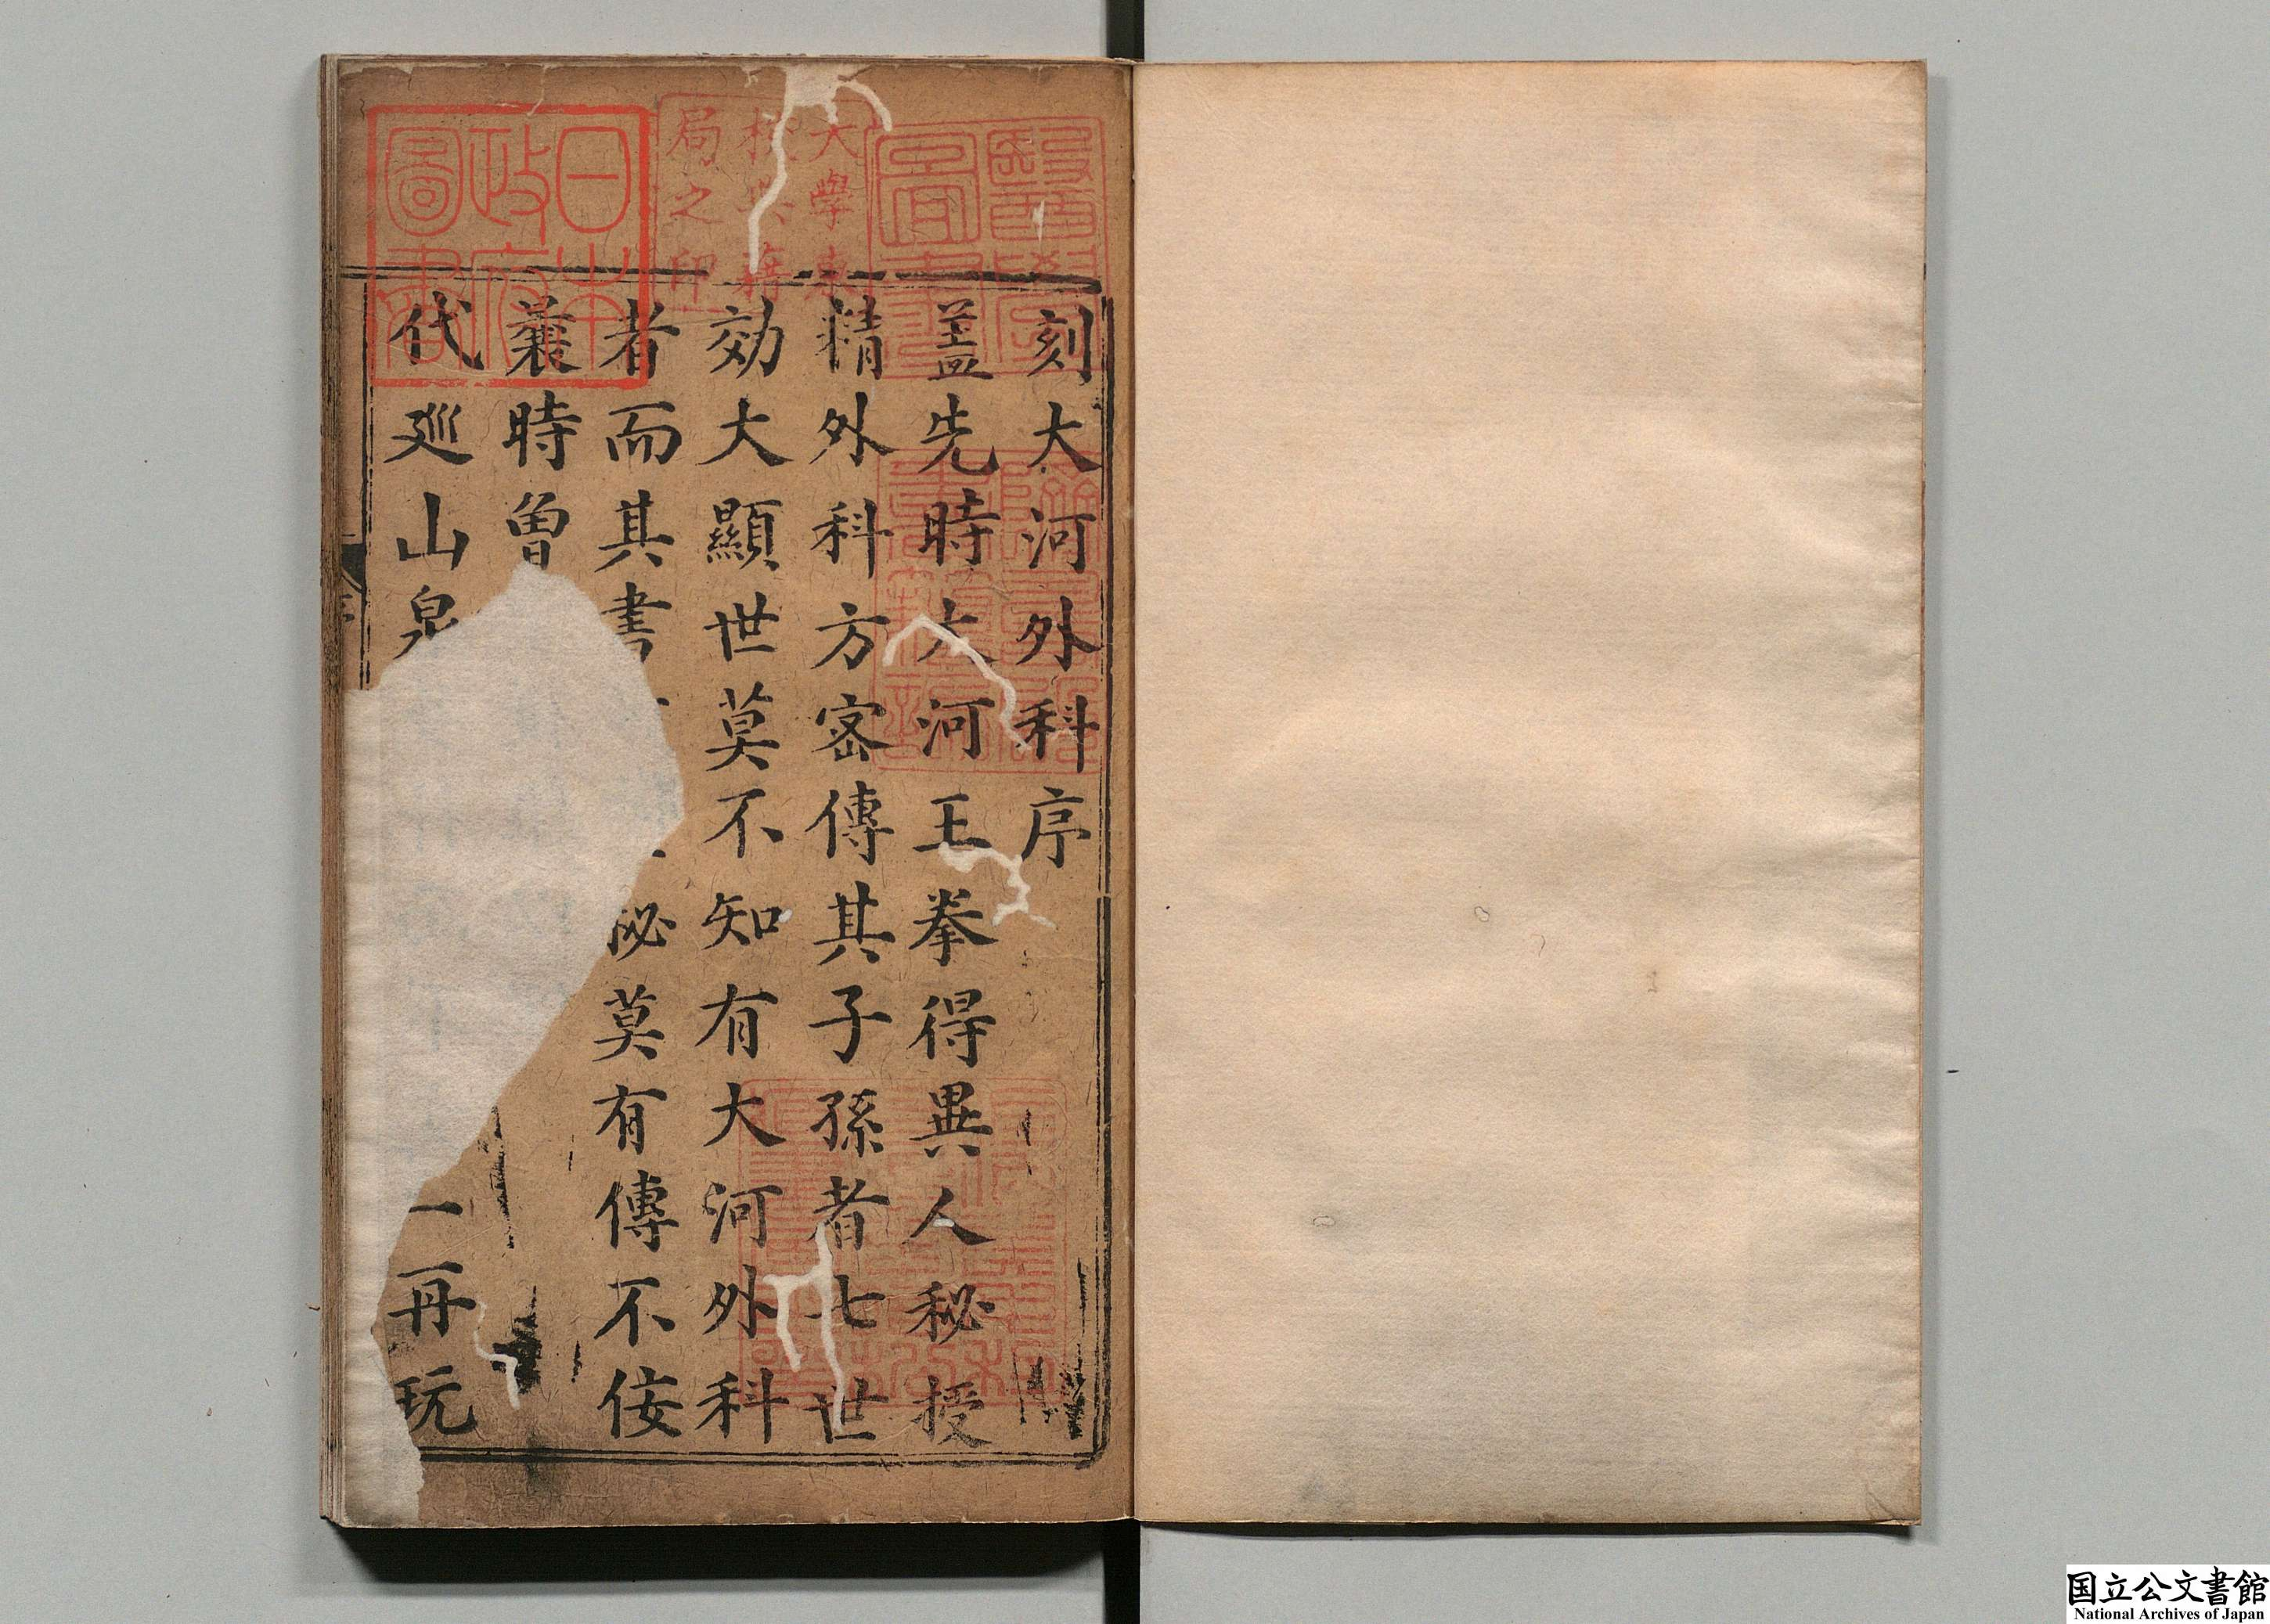 刻大河外科序
蓋先時大河王拳得異人秘授
精外科方密傳其子孫者七世
効大顯世莫不知有大河外科
者而其書秘莫有傳不佞
曩時曾
代廵山泉一再玩
醫學圖書
大學東校典籍局之印
日本政府圖書
国立公文書館
National Archives of Japan